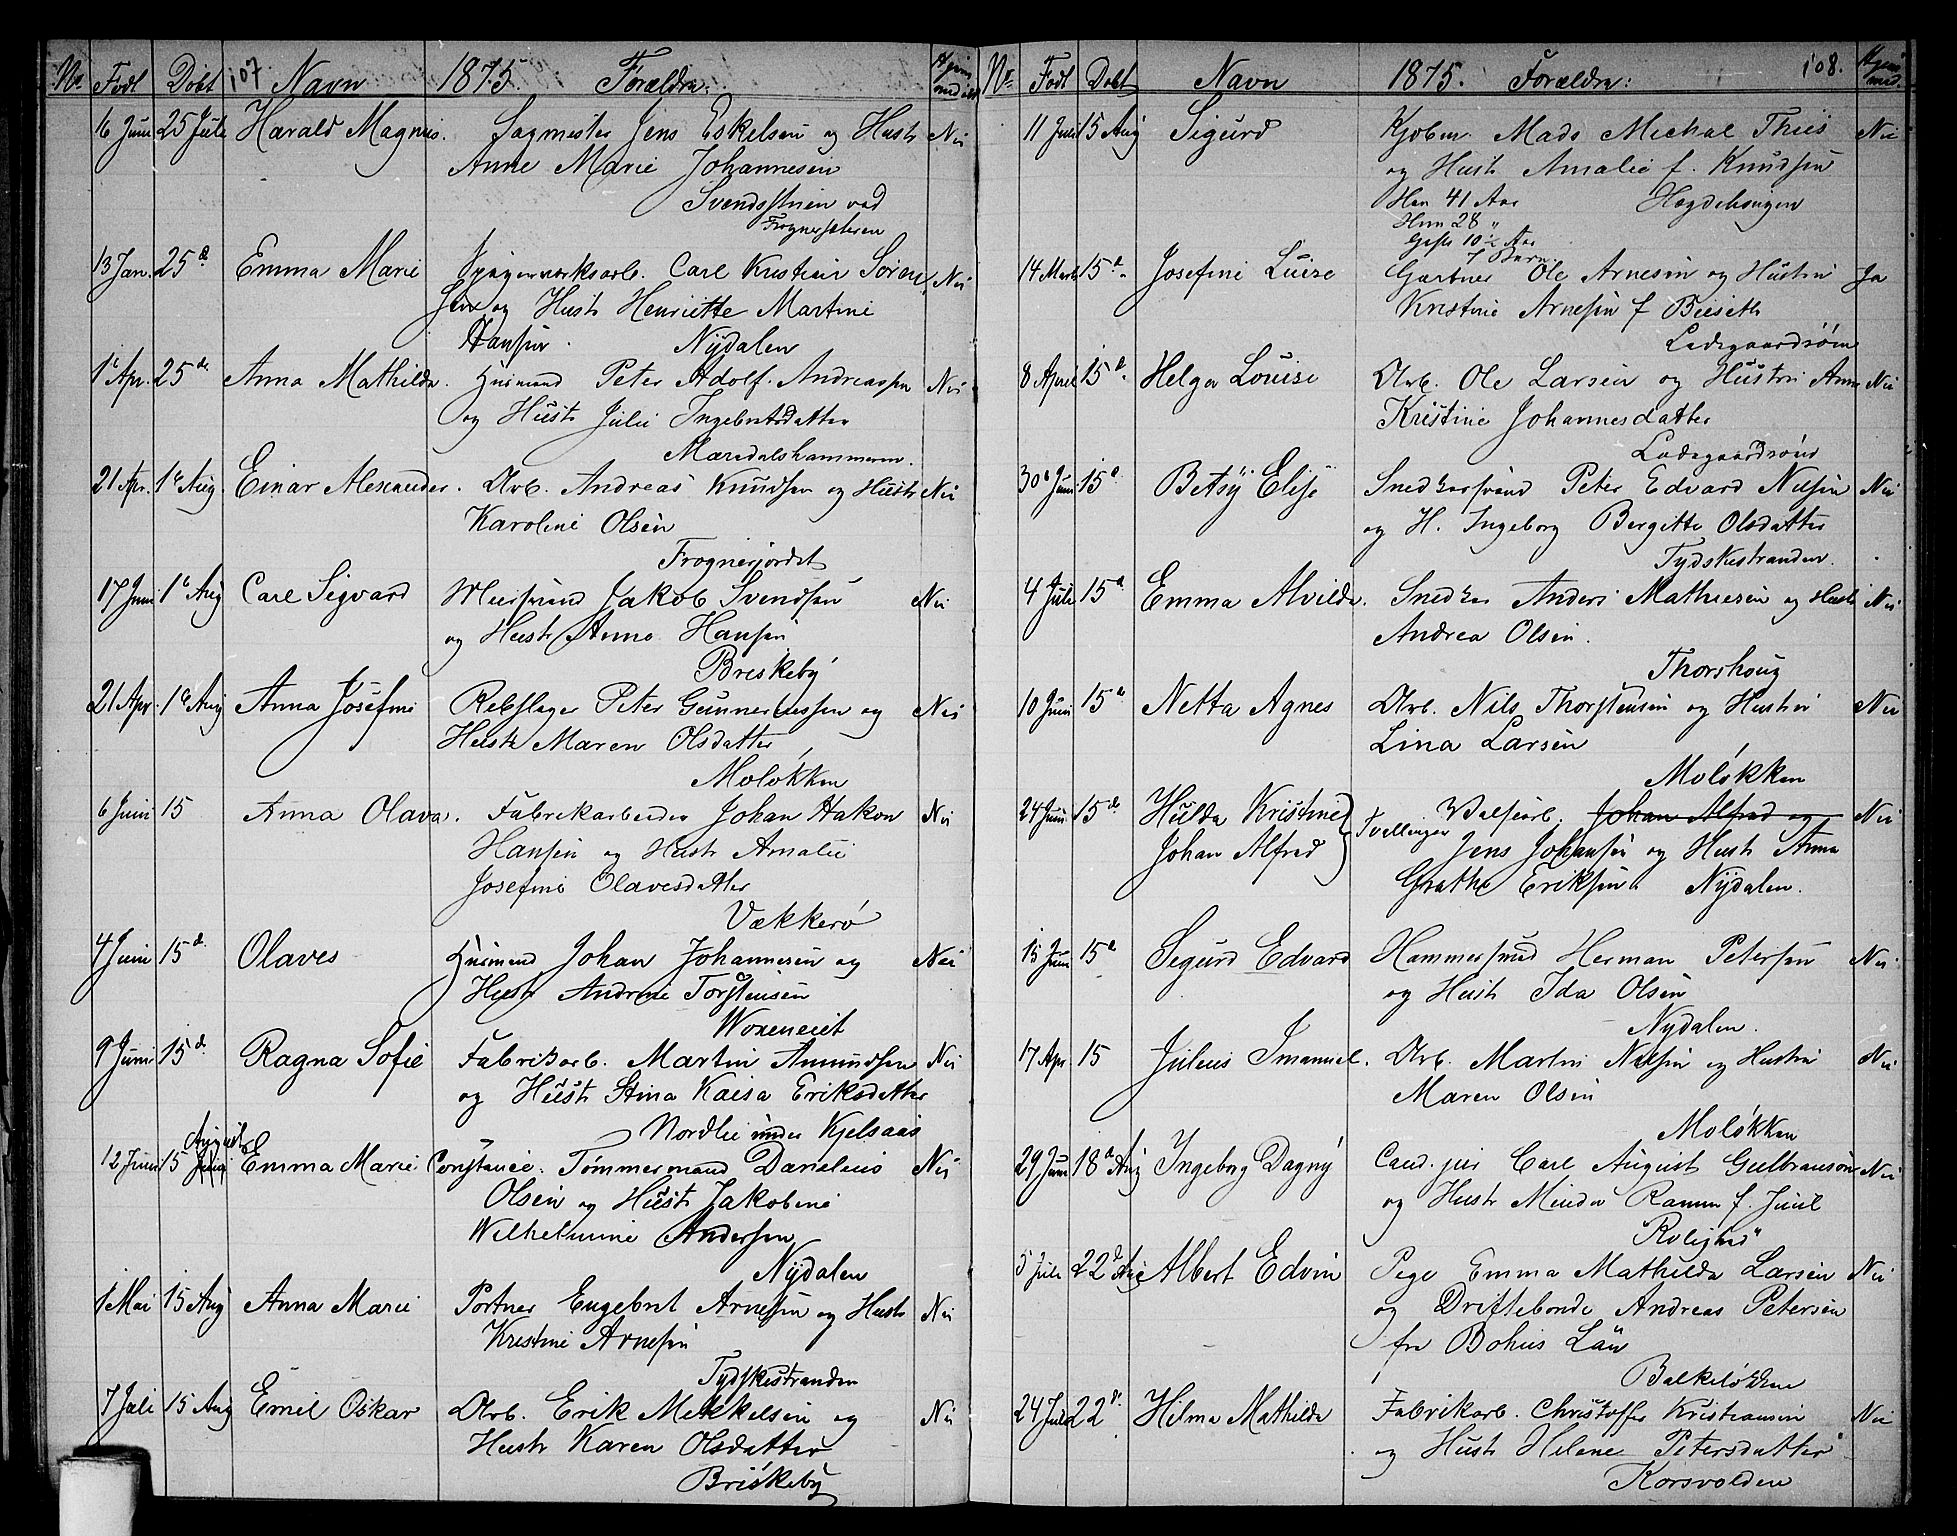 Nr. Født Döbt 107. Navn 1875 Forældre. Hjemmedøbt
16 Juni 25 Juli Harald Magnus. Sagmester Jens Eskelsen og Hustr Nei
Anne Marie Johannesen
Svendsstuen ved
Frognersæteren
13 Jan. 25 d. Emma Marie Spigerverksarb. Carl Kristian Sören Nei
sen og Hustr Henriette Martine
Hansen. Nydalen
1 Apr. 25 de Anna Mathilde. Husmand Peter Adolf Andreassen Nei
og Hustr Julie Ingebretsdatter
Maredalshammeren.
21 Apr. 1e Aug Einar Alexander. Arb. Andreas Knudsen og Hustr Nei
Karoline Olsen
Frognerjordet
17 Juni 1e Aug Carl Sigvard Muursvend Jakob Svendsen Nei
og Hustr Anne Hansen
Briskeby
21 Apr. 1e Aug Anna Josefine Rebslager Peter Gunnerussen og Nei
Hustr Maren Olsdatter
Moløkken
6 Juni 15 Anna Olava. Fabrikarbeider Johan Hakon Nei
Hansen og Hustr Amalie
Josefine Olavesdatter
Vækkerö
4 Juni 15 d. Olaves Husmand Johan Johannesen og Nei
Hustr Andrine Torstensen
Woxeneiet
9 Juni 15 d. Ragna Sofie Fabrikarb. Martin Amundsen Nei
og Hustr Stina Kaisa Eriksdatter
Nordlie under Kjelsaas
August
12 Juni 15 Juni Emma Marie Constance. Tömmermand Danelius Nei
Olsen og Hustr Jakobine
Wilhelmine Andersen
Nydalen
1 Mai 15 Aug Anna Marie Portner Engebret Arnesen og Hustr Nei
Kristine Arnesen
Tydskestranden
7 Juli 15 Aug Emil Oskar Arb. Erik Mekkelsen og Nei
Hustr Karen Olsdatter
Briskeby
Nr. Født Döbt Navn 1875. Forældre: 108. Hjemmed.
11 Juni 15 Aug Sigurd Kjøbm. Mads Michal Thiis Nei
og Hustr Amalie f. Knudsen
Han 41 Aar Hægdehaugen
Hun 28 "
Gifte 10½ Aar
7 Børn
14 Marts 15 d. Josefine Luise Gartner Ole Arnesen og Hustru Ja
Kristine Arnesen f Bieseth
Ladegaardsøen
8 April 15 d. Helga Louise Arb. Ole Larsen og Hustru Anne Nei
Kristine Johannesdatter
Ladegaardsøen
30 Juni 15 d Betsy Elise Snedkersvend Peter Edvard Nilsen Nei
og H. Ingeborg Bergitte Olsdatter
Tydskestranden.
4 Juli 15 d Emma Alvilde. Snedker Anders Mathiesen og Hustr Nei
Andrea Olsen.
Thorshoug
10 Juni 15 d Netta Agnes Arb. Nils Thorstensen og Hustru Nei
Lina Larsen
Moløkken
24 Juni 15 de Hulda Kristine Tvillinger Valsearb. Johan Alfred og Nei
Johan Alfred Jens Johansen og Hustr Anna
Grathe Eriksen. Nydalen.
15 Juni 15 d Segurd Edvard Hammersmed Herman Petersen Nei
og Hustr Ida Olsen
Nydalen.
17 Apr. 15 Julius Imanuel. Arb. Martin Nilsen og Hustru Nei
Maren Olsen
Moløkken
29 Juni 18 d Aug Ingeborg Dagny Cand. jur Carl August Gulbranson Nei
og Hustr Minda Ramm f. Juul
"Rolighed"
5 Juli 22 d Aug Albert Edvin Pige Emma Mathilde Larsen Nei
og Driftebonde Andreas Petersen
fra Bohus Län
Balkeløkken
24 Juli 22 d. Hilma Mathilde Fabrikarb. Christoffer Kristiansen Nei
og Hustr Helene Petersdatter
Korsvolden